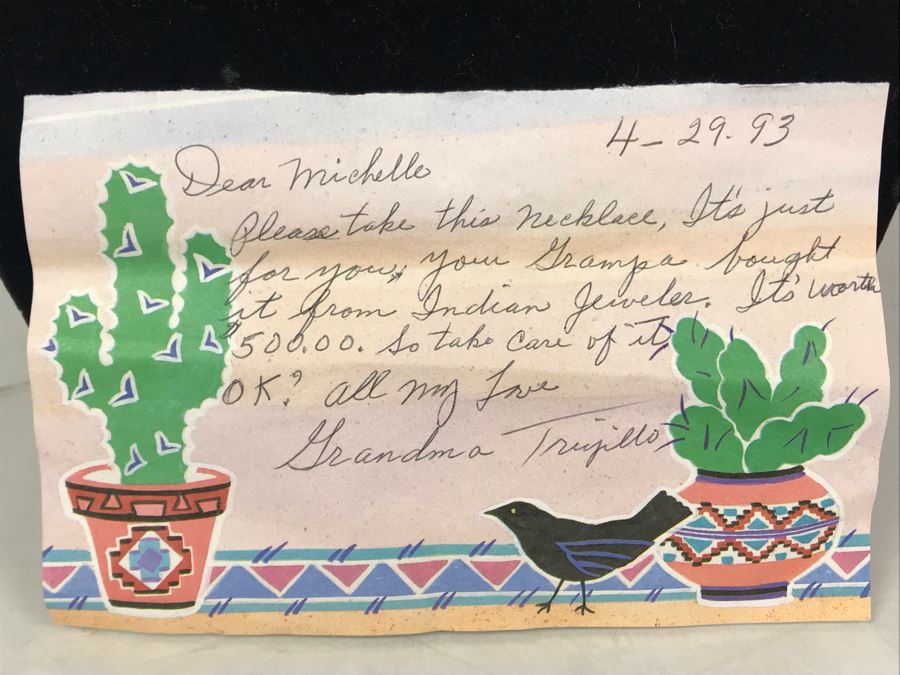 4-29-93
Dear Michelle
Please take this necklace, It's just
for you, your Grampa bought
it from Indian Jeweler. It's worth
$500.00. So take care of it
OK? All my Love
Grandma Trujillo